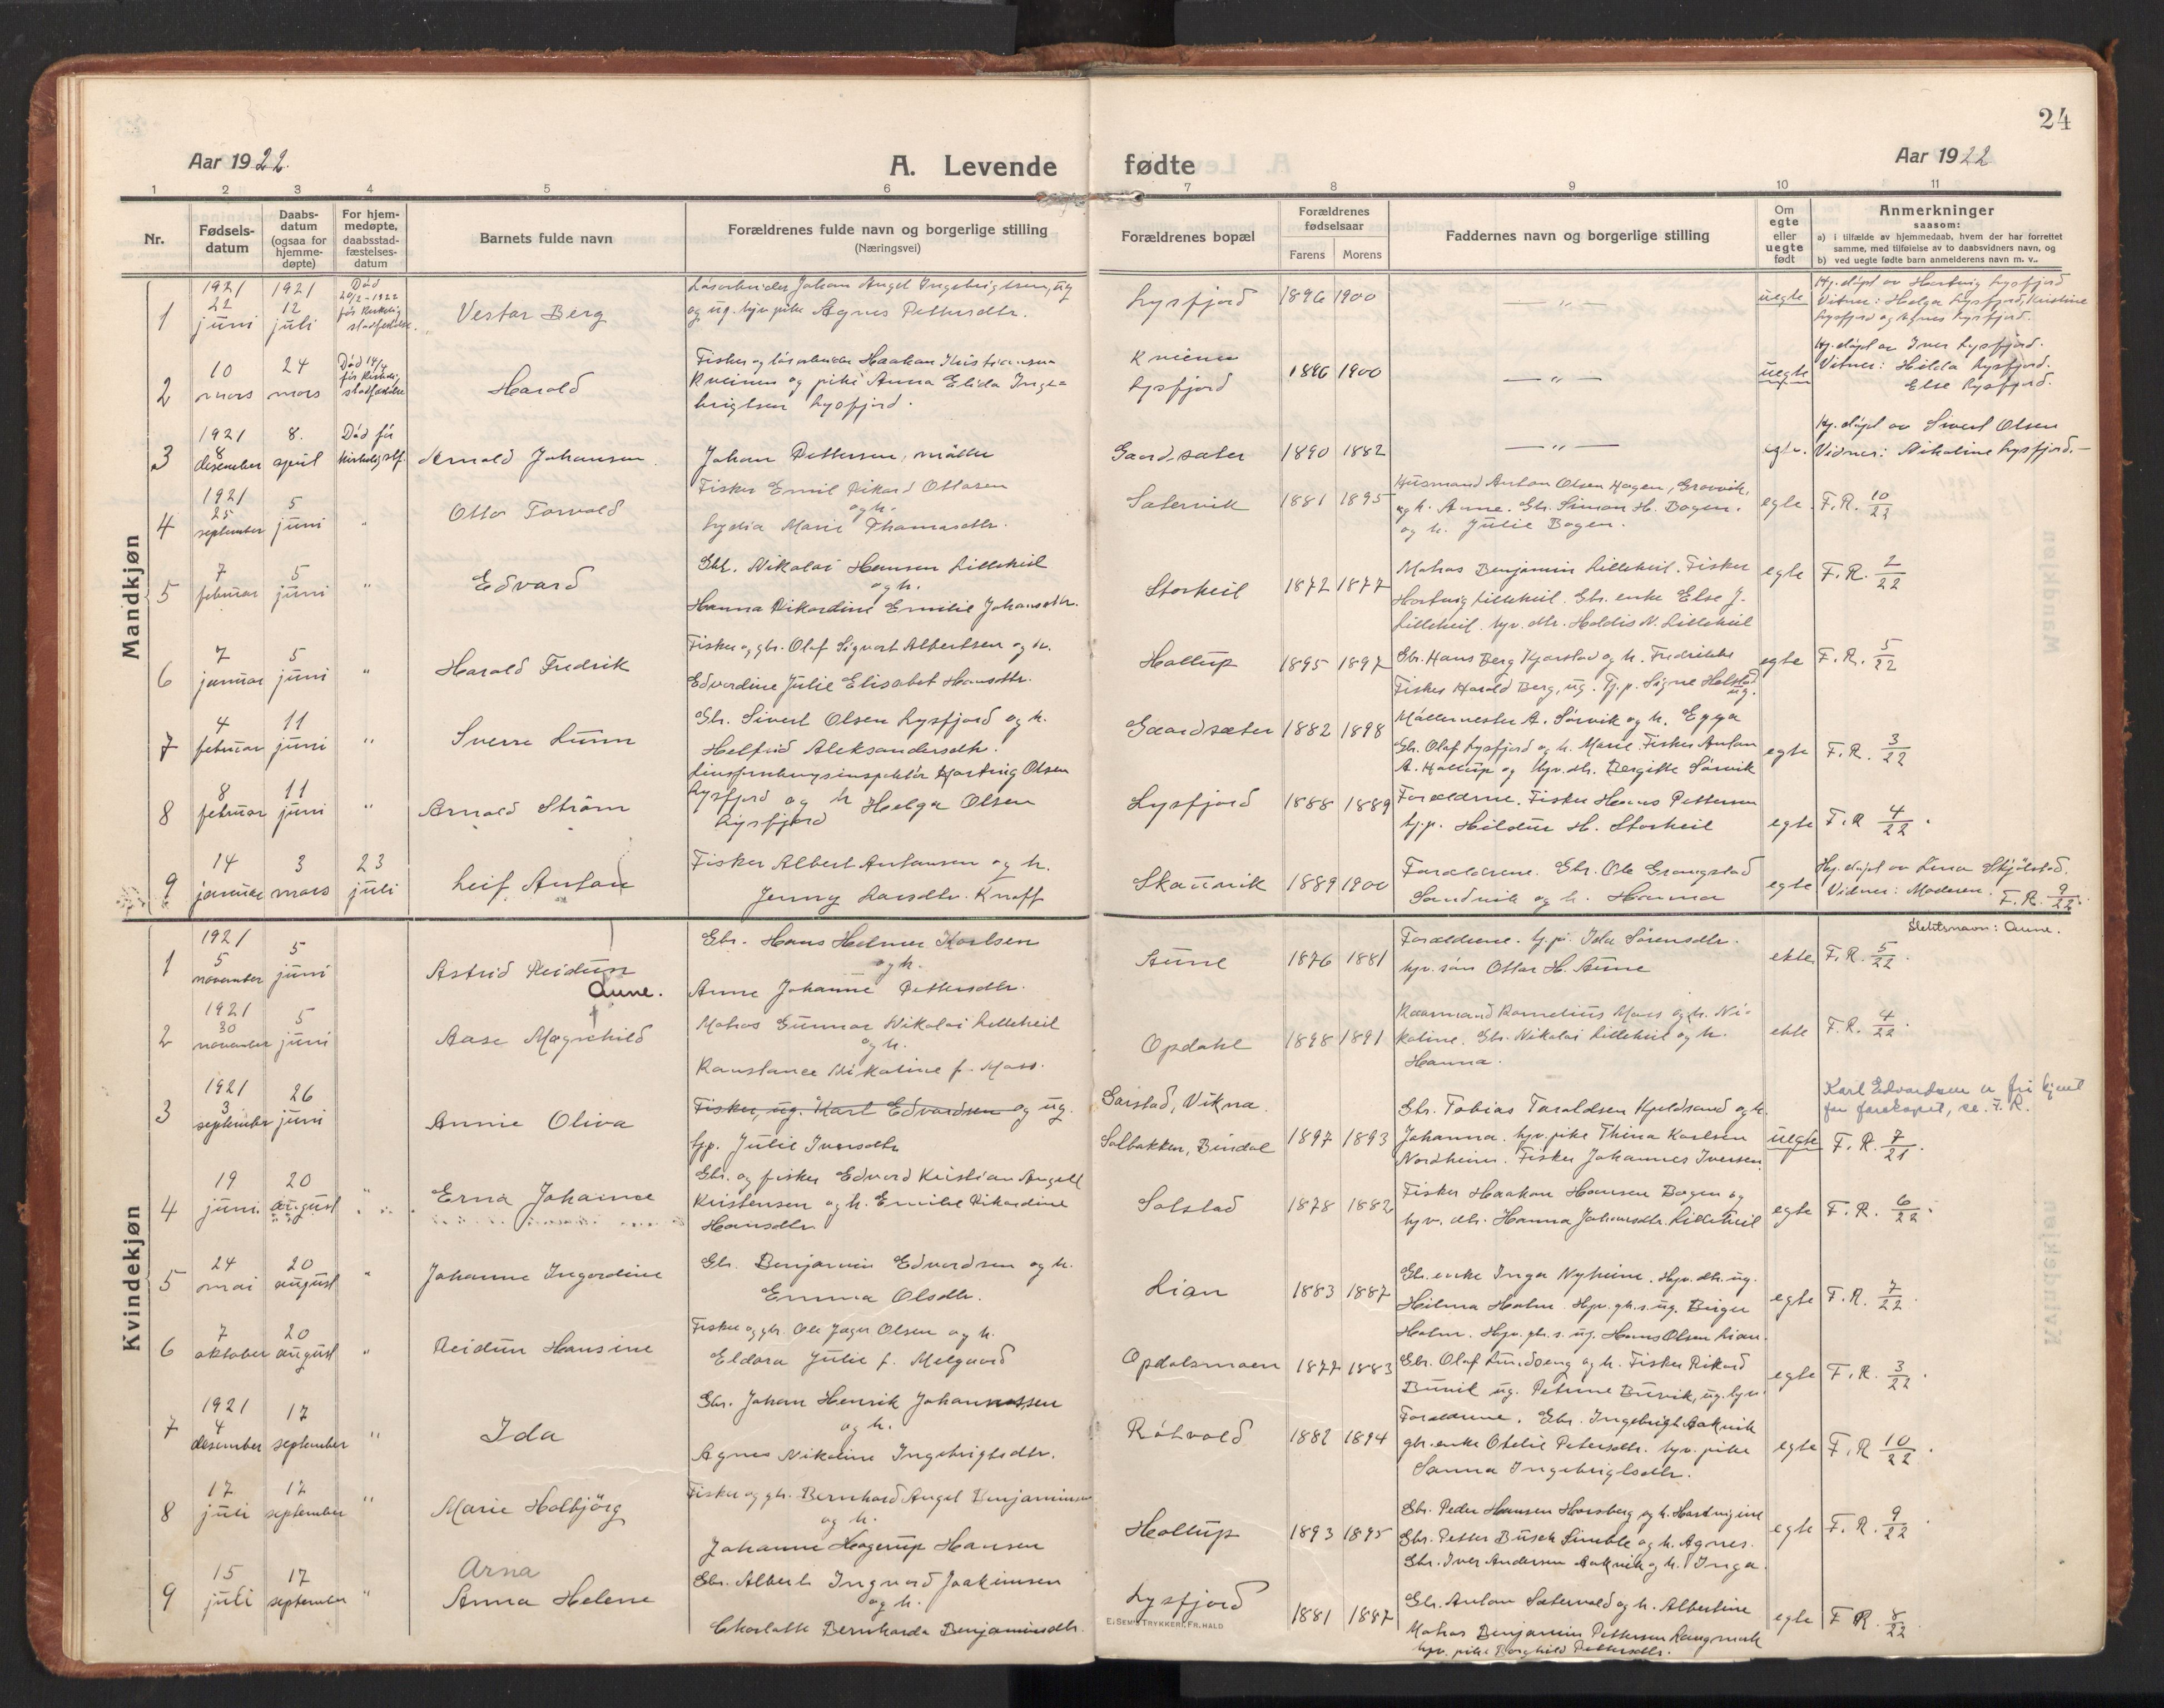 24
Aar 1922.
A. Levende fødte
Aar 1922
1 2 3 4 5 6 7 8 9 10 11
Nr.
Fødsels-
datum
Daabs-
datum
(ogsaa for
hjemme-
døpte)
For hjem-
medøpte,
daabsstad-
fæstelses-
datum
Barnets fulde navn
Forældrenes fulde navn og borgerlige stilling
(Næringsvei)
Forældrenes bopæl
Forældrenes
fødselsaar
Farens Morens
Faddernes navn og borgerlige stilling
Om
egte
eller
uegte
født
Anmerkninger
saasom:
a) i tilfælde av hjemmedaab, hvem der har forrettet
samme, med tilføielse av to daabsvidners navn, og
b) ved uegte fødte barn anmelderens navn m. v..
Mandkjøn
1
1921
22
juni
1921
12
juli
Død
20/2-1922
før kirkelig
Vestar Berg
Løsarbeider Johan Angel Ingebrigtsen, ug
og ug. hjv. pike Agnes Pettersdtr.
Lysfjord
1896 1900
— " —
uegte
Hj. døpt av Hartvig Lysfjord
Vitner: Helga Lysfjord, Kristine
Lysfjord og Agnes Lysfjord.
2
10
mars
24
mars
Harald
Fisker og løsarbeider Haakon Kristiansen
og pike Anna Elida Inge-
brigtsen Lysfjord.
Lysfjord
1896 1900
— " —
uegte
Hj. døpt av Iver Lysfjord.
Vitner: Hilda Lysfjord.
Else Lysfjord.
3
1921
8
desember
8.
april
Død før
kirkelig stf.
Arnold Johansen
Johan Pettersen, møller
Gaardsæter
1890 1882
— " —
egte.
Hj. døpt av Sivert Olsen
Vidner: Nikoline Lysfjord.—
4
1921
25
september
5
juni
"
Otto Torvald
Fisker Emil Rikard Ottosen
og h.
Lydia Marie Thomasdtr.
Sætervik
1881 1895
Husmand Anton Olsen Hagen, Gravvik,
og h. Anne. Gbr. Simon H. Bogen.
og h. Julie Bogen.
egte
F.R. 10/22
5
7
februar
5
juni
"
Edvard
Gbr. Nikolai Hansen Lilleheil
og h.
Hanna Rikardine Emilie Johansdtr.
Storheil
1872 1877
Matros Benjamin Lilleheil. Fisker
Hartvig Lilleheil. Gbr. enke Else J.
Lilleheil. hjv. dtr. Haldis N. Lilleheil
egte
F.R. 2/22
6
7
januar
5
juni
"
Harald Fredrik
Fisker og gbr. Olaf Sigvart Albertsen og h.
Edvardine Julie Elisabet Hansdtr.
Holtup
1895 1897
Gbr. Hans Berg Kjærstad og h. Fredrikke
Fisker Harald Berg, ug. Tj.p. Signe Holstad
ug.
egte
F.R. 5/22
7
4
februar
11
juni
"
Sverre Lunn
Gbr. Sivert Olsen Lysfjord og h.
Helfrid Aleksandersdtr.
Gaardsæter
1882 1898
Møllermester A. Sørvik og h. Egga
Gbr. Olaf Lysfjord og h. Marie. Fisker Anton
A. Holtup og hjv. dtr. Bergitte Sørvik
egte
F.R. 3/22
8
8
februar
11
juni
"
Arnold Strøm
Hartvig Olsen
Lysfjord og h Helga Olsen
Lysfjord
Lysfjord
1888 1889
Forældrene. Fisker Hans Pettersen
tj.p. Hildur H. Storheil
egte
F.R 4/22.
9
14
januar
3
mars
23
juli
Leif Anton
Fisker Albert Antonsen og h.
Jenny Larsdtr. Knoff
Skaunvik
1889 1900
Forældrene. Gbr. Ole Grangstad
Sandvik og h. Hanna
egte
Hj. døpt av Lina Skjølstad.
Vidner: Moderen. F.R. 9/22.
Kvindekjøn
1
1921
5
november
5
juni
Astrid Reidun
Aune.
Gbr. Hans Helmer Karlsen
og h.
Anne Johanne Pettersdtr.
Aune
1876 1881
Forældrene. tj.pi. Ida Sørensdtr.
hjv. søn Ottar H. Aune
ekte
Slektsnavn: Aune.
F.R. 5/22.
2
1921
30
november
5
juni
Aase Magnhild
Matros Gunnar Nikolai Lilleheil
og h.
Konstance Nikoline f. Moss.
Opdahl
1898 1891
Kaarmand Kornelius Moss og h. Ni-
koline. Gbr. Nikolai Lilleheil og h.
Hanna.
ekte
F.R. 4/22.
3
1921
3
september
26
juni
Annie Oliva
Fisker, ug. Karl Edvardsen og ug.
tjp. Julie Iversdtr
Garstad, Vikna.
Solbakken, Bindal
1897 1893
Gbr. Tobias Taraldsen Kjeldsand og h.
Johanna. hjv. pike Thina Karlsen
Nordheim. Fisker Johannes Iversen
uegte
Karl Edvardsen er fri kjent
for farskapet, se. F.R.
F.R. 7/21.
4
19
juni
20
august
"
Erna Johanne
Gbr. og fisker Edvard Kristian Angell
Kristensen og h. Emilie Rikardine
Hansdtr
Solstad
1878 1882
Fisker Haakon Hansen Bogen og
hjv. dtr. Hanna Johansdtr. Lilleheil
egte
F.R. 6/22.
5
24
mai
20
august
"
Johanne Ingardine
Gbr. Benjamin Edvardsen og h.
Emma Olsdtr.
Lian
1883 1887
Gbr. enke Inga Nyheim. Hjv. dtr. ug.
Hilma Holm. Hjv. gb.s. ug. Birger
Holm. Hjv. gb. s. ug. Hans Olsen Lian.
egte
F.R. 7/22.
6
7
oktober
20
august
"
Reidun Hansine
Fisker og gbr. Ole Jager Olsen og h.
Eldora Julie f. Melgaard
Opdalsmoen
1877 1883
Gbr. Olaf Lundseng og h. Fisker Rikard
Burvik ug. Petrine Burvik, ug. hjv.
egte
F.R. 3/22.
7
1921
4
desember
17
september
"
Ida
Gbr. Johan Henrik Johannessen
og h.
Agnes Nikoline Ingebrigtsdtr.
Røtvold
1882 1894
Forældrene. Gbr. Ingebrigt Aakvik
gbr. enke Otelie Petersdtr. hjv. pike
Sanna Ingebrigtsdtr.
egte
F.R 10/22.
8
17
juli
17
september
"
Marie Holbjörg
Fisker og gbr. Bernhard Angel Benjaminsen
og h.
Johanne Hagerup Hansen
Holtup
1893 1895
Gbr. Peder Hansen Horsberg og h. Hartvigine
Gbr. Petter Busch Simble og h. Agnes.
Gbr. Iver Andersen Aakvik og h. Inga.
egte
F.R. 9/22
9
15
juli
17
september
"
Arna
Anna Helene
Gbr. Albert Ingvard Joakimsen
og h.
Charlotte Bernharda Benjaminsdtr.
Lysfjord
1881 1887
Gbr. Anton Sætervold og h. Albertine
Matros Benjamin Pettersen Langmark
hjv. pike Borghild Pettersdtr.
egte
F R. 8/22.
E. SEMS TRYKKERI, FR. HALD